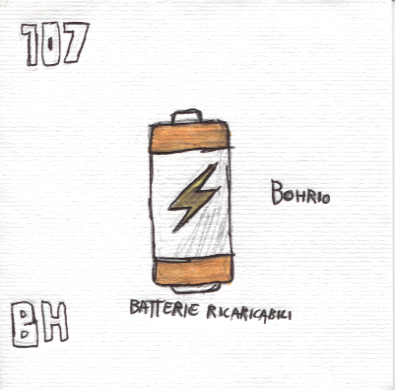 107
BOHRIO
BATTERIE RICARICABILI
BH